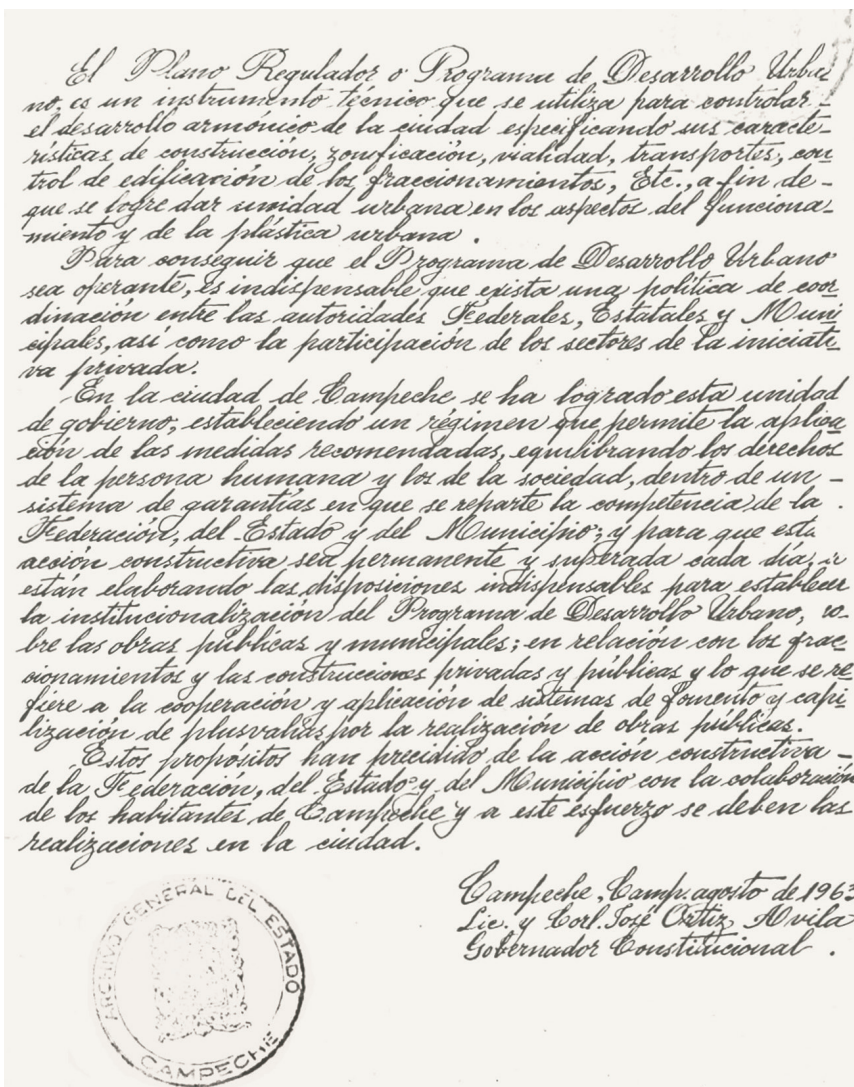 El Plano Regulador o Programa de Desarrollo Urba
no, es un instrumento técnico que se utiliza para controlar -
el desarrollo armónico de la ciudad especificando sus caracte-
rísticas de construcción, zonificación, vialidad, transportes, con
trol de edificación de los fraccionamientos, Etc., a fin de -
que se logre dar unidad urbana en los aspectos del funciona-
miento y de la plástica urbana.
Para conseguir que el Programa de Desarrollo Urbano
sea operante, es indispensable que exista una política de coor
dinación entre las autoridades Federales, Estatales y Muni
cipales, así como la participación de los sectores de la iniciati
va privada.
En la ciudad de Campeche se ha logrado esta unidad
de gobierno, estableciendo un régimen que permite la aplica
ción de las medidas recomendadas, equilibrando los derechos
de la persona humana y los de la sociedad, dentro de un -
sistema de garantías en que se reparte la competencia de la
Federación, del Estado y del Municipio; y para que esta
acción constructiva sea permanente y superada cada día,
están elaborando las disposiciones indispensables para establecer
la institucionalización del Programa de Desarrollo Urbano, so-
bre las obras públicas y municipales; en relación con los frac
cionamientos y las construcciones privadas y públicas y lo que se re
fiere a la cooperación y aplicación de sistemas de fomento y capi
lización de plusvalías por la realización de obras públicas.
Estos propósitos han precidido de la acción constructiva -
de la Federación, del Estado y del Municipio con la colaboración
de los habitantes de Campeche y a este esfuerzo se deben las
realizaciones en la ciudad.
Campeche, Camp. agosto de 1963
Lic. y Corl. José Ortiz Avila
Gobernador Constitucional.
ARCHIVO GENERAL DEL ESTADO
CAMPECHE